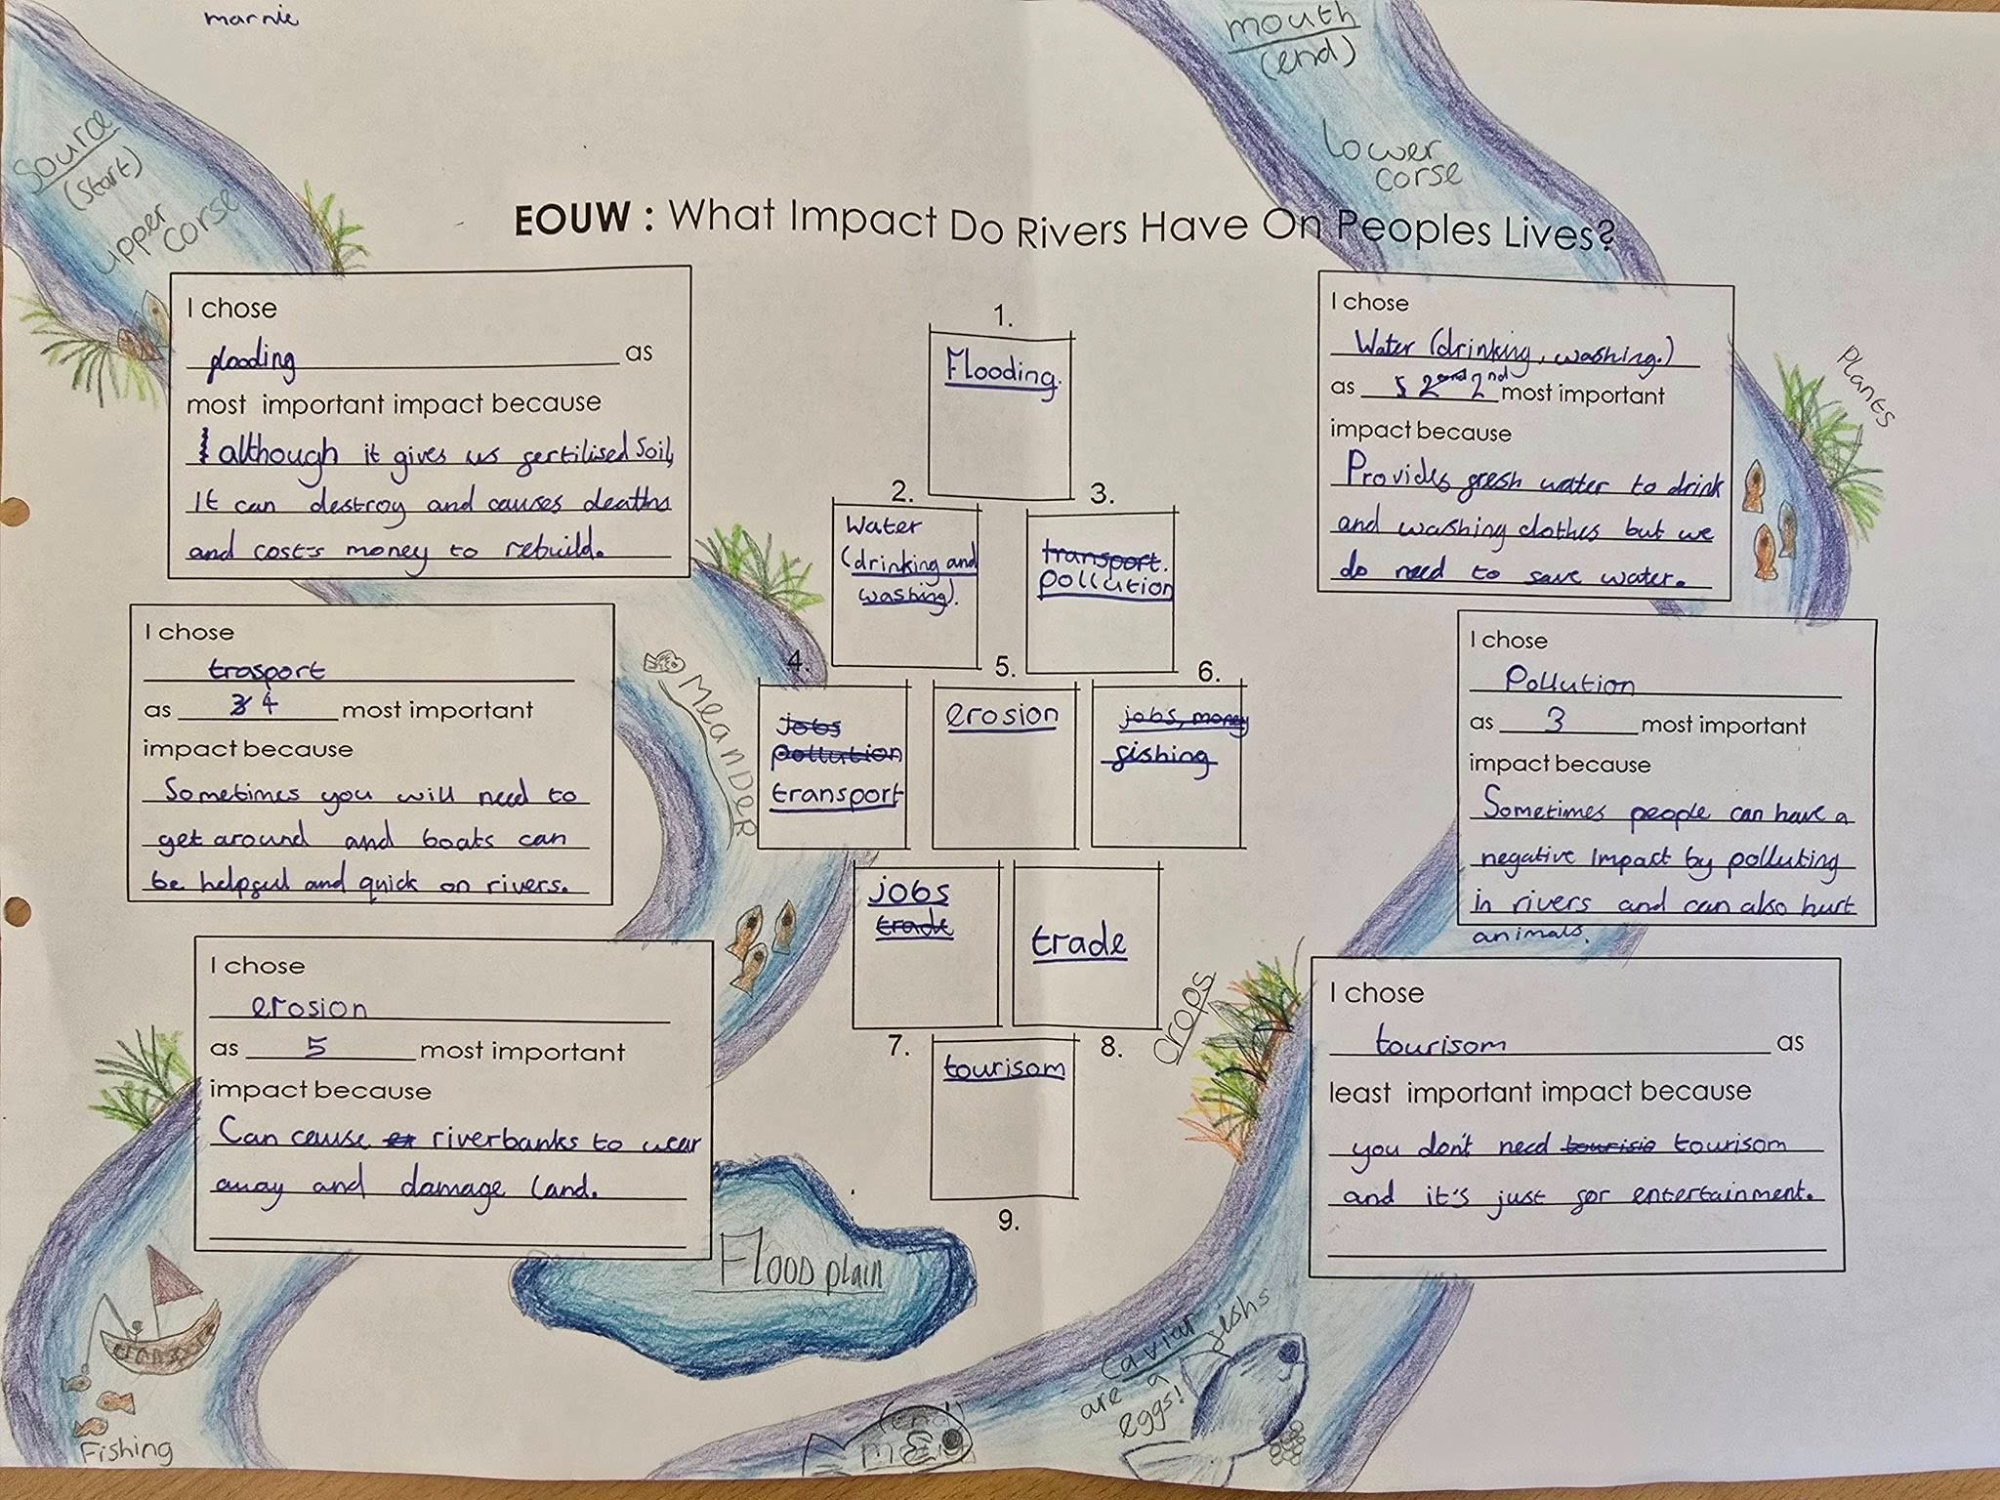 marnie
Source
(start)
upper
corse
mouth
(end)
Lower
corse
EOUW : What Impact Do Rivers Have On Peoples Lives?
I chose
flooding as
most important impact because
although it gives us fertilised soil,
It can destroy and causes deaths
and costs money to rebuild.
I chose
trasport
as 3 4 most important
impact because
Sometimes you will need to
get around and boats can
be helpful and quick on rivers.
I chose
erosion
as 5 most important
impact because
Can cause er riverbanks to wear
away and damage land.
1.
Flooding.
2.
Water
(drinking and
washing).
3.
transport.
pollution
4.
jobs
pollution
transport
5.
erosion
6.
jobs, money
fishing
jobs
trade
7.
trade
8.
tourisom
9.
I chose
Water (drinking, washing.)
as 5 2nd 2nd most important
impact because
Provides fresh water to drink
and washing clothes but we
do need to save water.
I chose
Pollution
as 3 most important
impact because
Sometimes people can have a
negative impact by polluting
in rivers and can also hurt
animals.
I chose
tourisom as
least important impact because
you don't need tourisom
and it's just for entertainment.
Plants
Meander
Crops
Flood plain
transport
Fishing
Caviar fishs
are a
eggs!